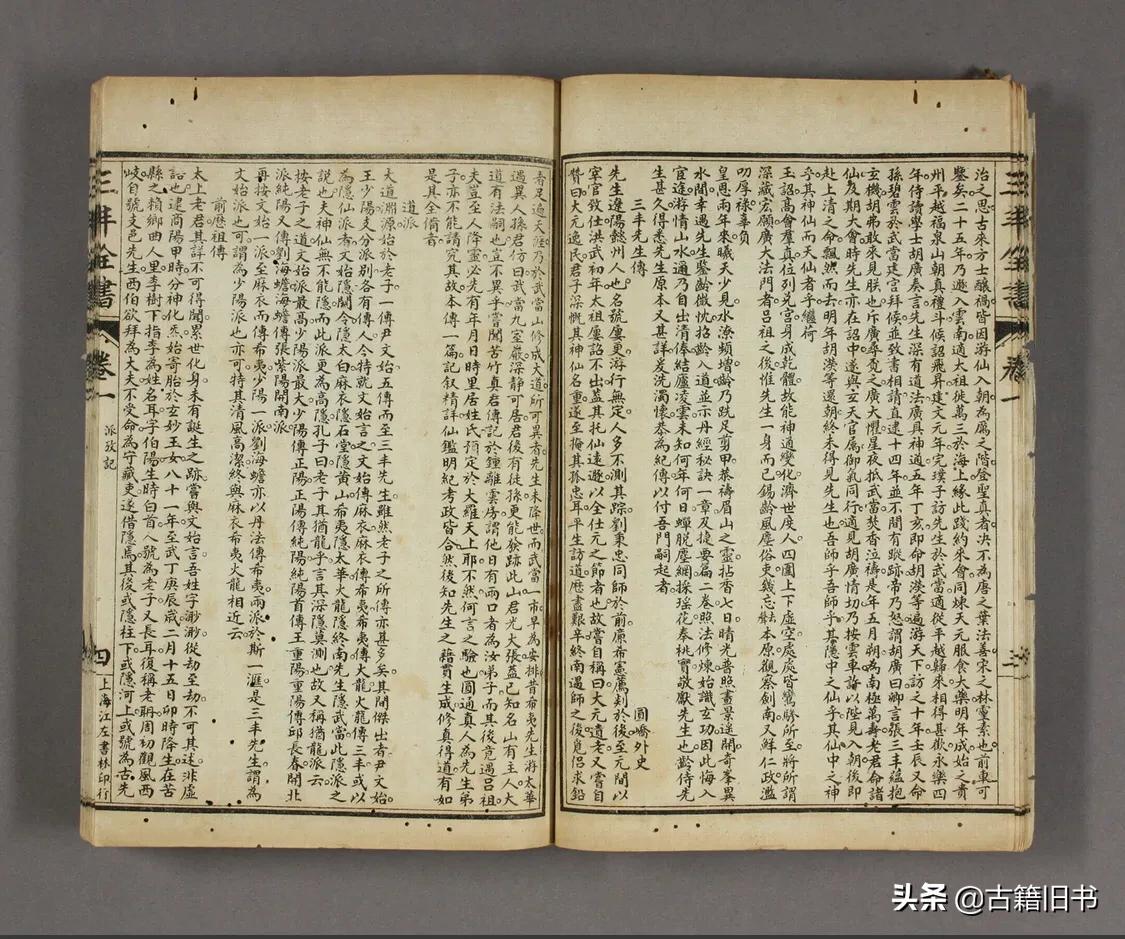 治之思古來方士釀禍皆因游仙入朝為厲之階登聖真者決不為唐之葉法善宋之林靈素也前車可
鑒矣二十五年乃遯入雲南適太祖徙萬三於海上緣此踐約來會同煉天元服食大藥明年成始之貴
州平越福泉山朝真禮斗候詔飛昇建文元年完璞子訪先生於武當適從平越歸來相得甚歡永樂四
年侍讀學士胡廣奏言先生深有道法廣具神通五年丁亥即命胡濙等遍游天下訪之十年壬辰又命
孫碧雲於武當建宮拜候並致書相請直逮十四年並不聞有蹤跡帝乃怒謂胡廣曰卿言張三丰蘊抱
玄機胡弗敢來見朕也斥廣尋覓之廣大懼星夜抵武當焚香泣禱是年五月朔為南極萬壽老君命諸
仙及期大會時先生亦在詔中遂與玄天官屬御氣同行適見胡廣情切乃按雲車許以陛見入朝後即
赴上清之命飄然而去明年胡濙等還朝終未得見先生也吾師乎吾師乎其隱中之仙乎其仙中之神
乎其神仙而天仙者乎繼荷
玉詔高會羣真位列兑宮身成乾體故能神通變化濟世度人四圍上下虛空處處皆鸞驂所至將所謂
深藏宏願廣大法門者呂祖之後惟先生一身而已錫齡風塵俗吏幾忘本原觀察劍南又鮮仁政濫
叨厚祿辜負
皇恩兩年來曦天少見水潦頻增齡乃跣足剪甲恭禱眉山之靈拈香七日晴光普照畫景遥開奇峯異
水間幸遇先生鑒齡微忱招齡入道並示丹經秘訣一章及捷要篇二卷照法修煉始識玄功因此悔入
宦途游情山水適乃自出清俸結廬凌雲未知何年何日蟬脫塵網採瑤花奉桃實敬獻先生也齡侍先
生甚久得悉先生原本又甚詳爰洗濁懷恭為紀傳以付吾門嗣起者
三丰先生傳
圓嶠外史
先生遼陽懿州人也名號屢更游行無定人多不測其踪劉秉忠同師於前廉希憲薦剡於後至元間以
宰官致仕洪武初年太祖屢詔不出蓋其托仙遠遊以全仕元之節者也故嘗自稱曰大元遺老又嘗自
贊曰大元逸民君子深慨其神仙名重遂至掩其孤忠耳平生訪道歷盡艱辛終南遇師之後覓侶求鉛
三丰全書
卷一
春足遍天涯乃於武當山修成大道所可異者先生未降世而武當一市早為安排昔希夷先生游太華
遇異人孫君仿曰武當九室巖深靜可居君後有徒孫更能發跡此山君光大張蓋已知名山有主人大
道有法嗣也豈不異乎嘗聞苦竹真君傳記於鍾離雲房謂他日有兩口者為汝弟子而其後竟遇呂祖
夫豈至人降靈必先有年月日時里居姓氏預定於大羅天上耶不然何言之驗也圓通真人為先生弟
子亦不能請究其故本傳一篇記叙精詳仙鑑明紀考政皆合然後知先生之藉貫生成修真得道有如
是其全備者
道派
大道淵源始於老子一傳尹文始五傳而至三丰先生雖然老子之所傳亦甚多矣其間傑出者尹文始
王少陽支分派別各有傳人今特就文始言之文始傳麻衣麻衣傳希夷希夷傳火龍火龍傳三丰或以
為隱仙派者文始隱關令隱太白麻衣隱石堂隱黃山希夷隱太華火龍隱終南先生隱武當此隱派之
說也夫神仙無不能隱而此派更為高隱孔子曰老子其猶龍乎言其深隱莫測也故又稱猶龍派云
按老子之道文始派最高少陽派最大少陽傳正陽正陽傳純陽純陽首傳王重陽重陽傳邱長春開北
派純陽又傳劉海蟾海蟾傳張紫陽開南派
再按文始一派至麻衣而傳希夷少陽一派劉海蟾亦以丹法傳希夷兩派於斯一滙是三丰先生謂為
文始派也可謂為少陽派也亦可特其清風高潔終與麻衣希夷火龍相近云
前歷祖傳
太上老君其詳不可得聞累世化身未有誕生之跡嘗與文始言吾姓字渺渺從劫至劫不可具述非虛
語也逮商陽甲時分神化炁始寄胎於玄妙玉女八十一年至武丁庚辰歲二月十五日卯時降生在苦
縣之賴鄉曲人里李樹下指李為姓名耳字伯陽生時白首人號為老子又長耳復稱老聃周初觀風西
岐自號支邑先生西伯欲拜為大夫不受命為守藏吏遂借隱焉其後或隱柱下或隱河上或號為古先
三丰全書
卷一
派攷記
四
上海江左書林印行
头条 @古籍旧书